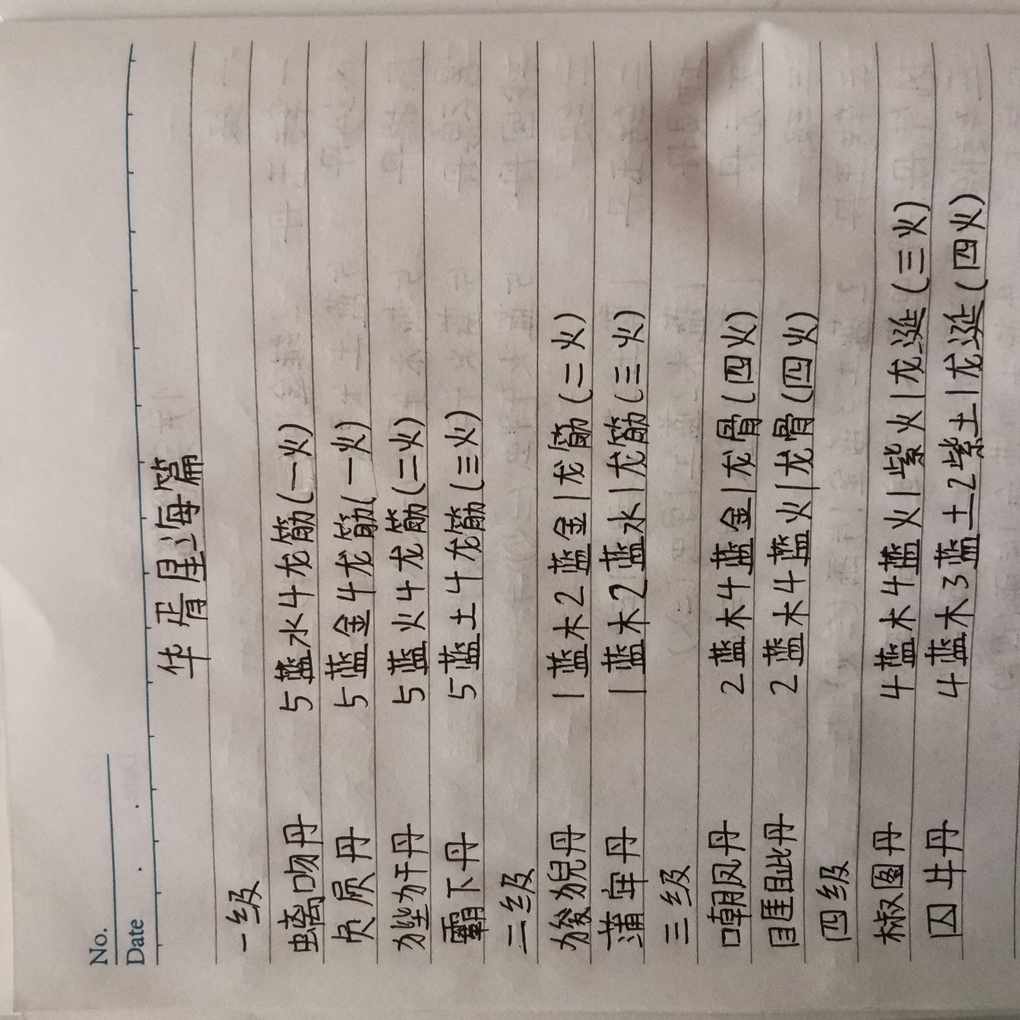 No.
Date
华胥屋海篇
一级
螭吻丹 5蓝水4龙筋(一火)
负屃丹 5蓝金4龙筋(一火)
狴犴丹 5蓝火4龙筋(二火)
霸下丹 5蓝土4龙筋(三火)
二级
狻猊丹 1蓝木2蓝金1龙筋(二火)
蒲牢丹 1蓝木2蓝水1龙筋(三火)
三级
嘲凤丹 2蓝木4蓝金1龙骨(四火)
睚眦丹 2蓝木4蓝火1龙骨(四火)
四级
椒图丹 4蓝木4蓝火1紫火1龙涎(三火)
囚牛丹 4蓝木3蓝土2紫土1龙涎(四火)